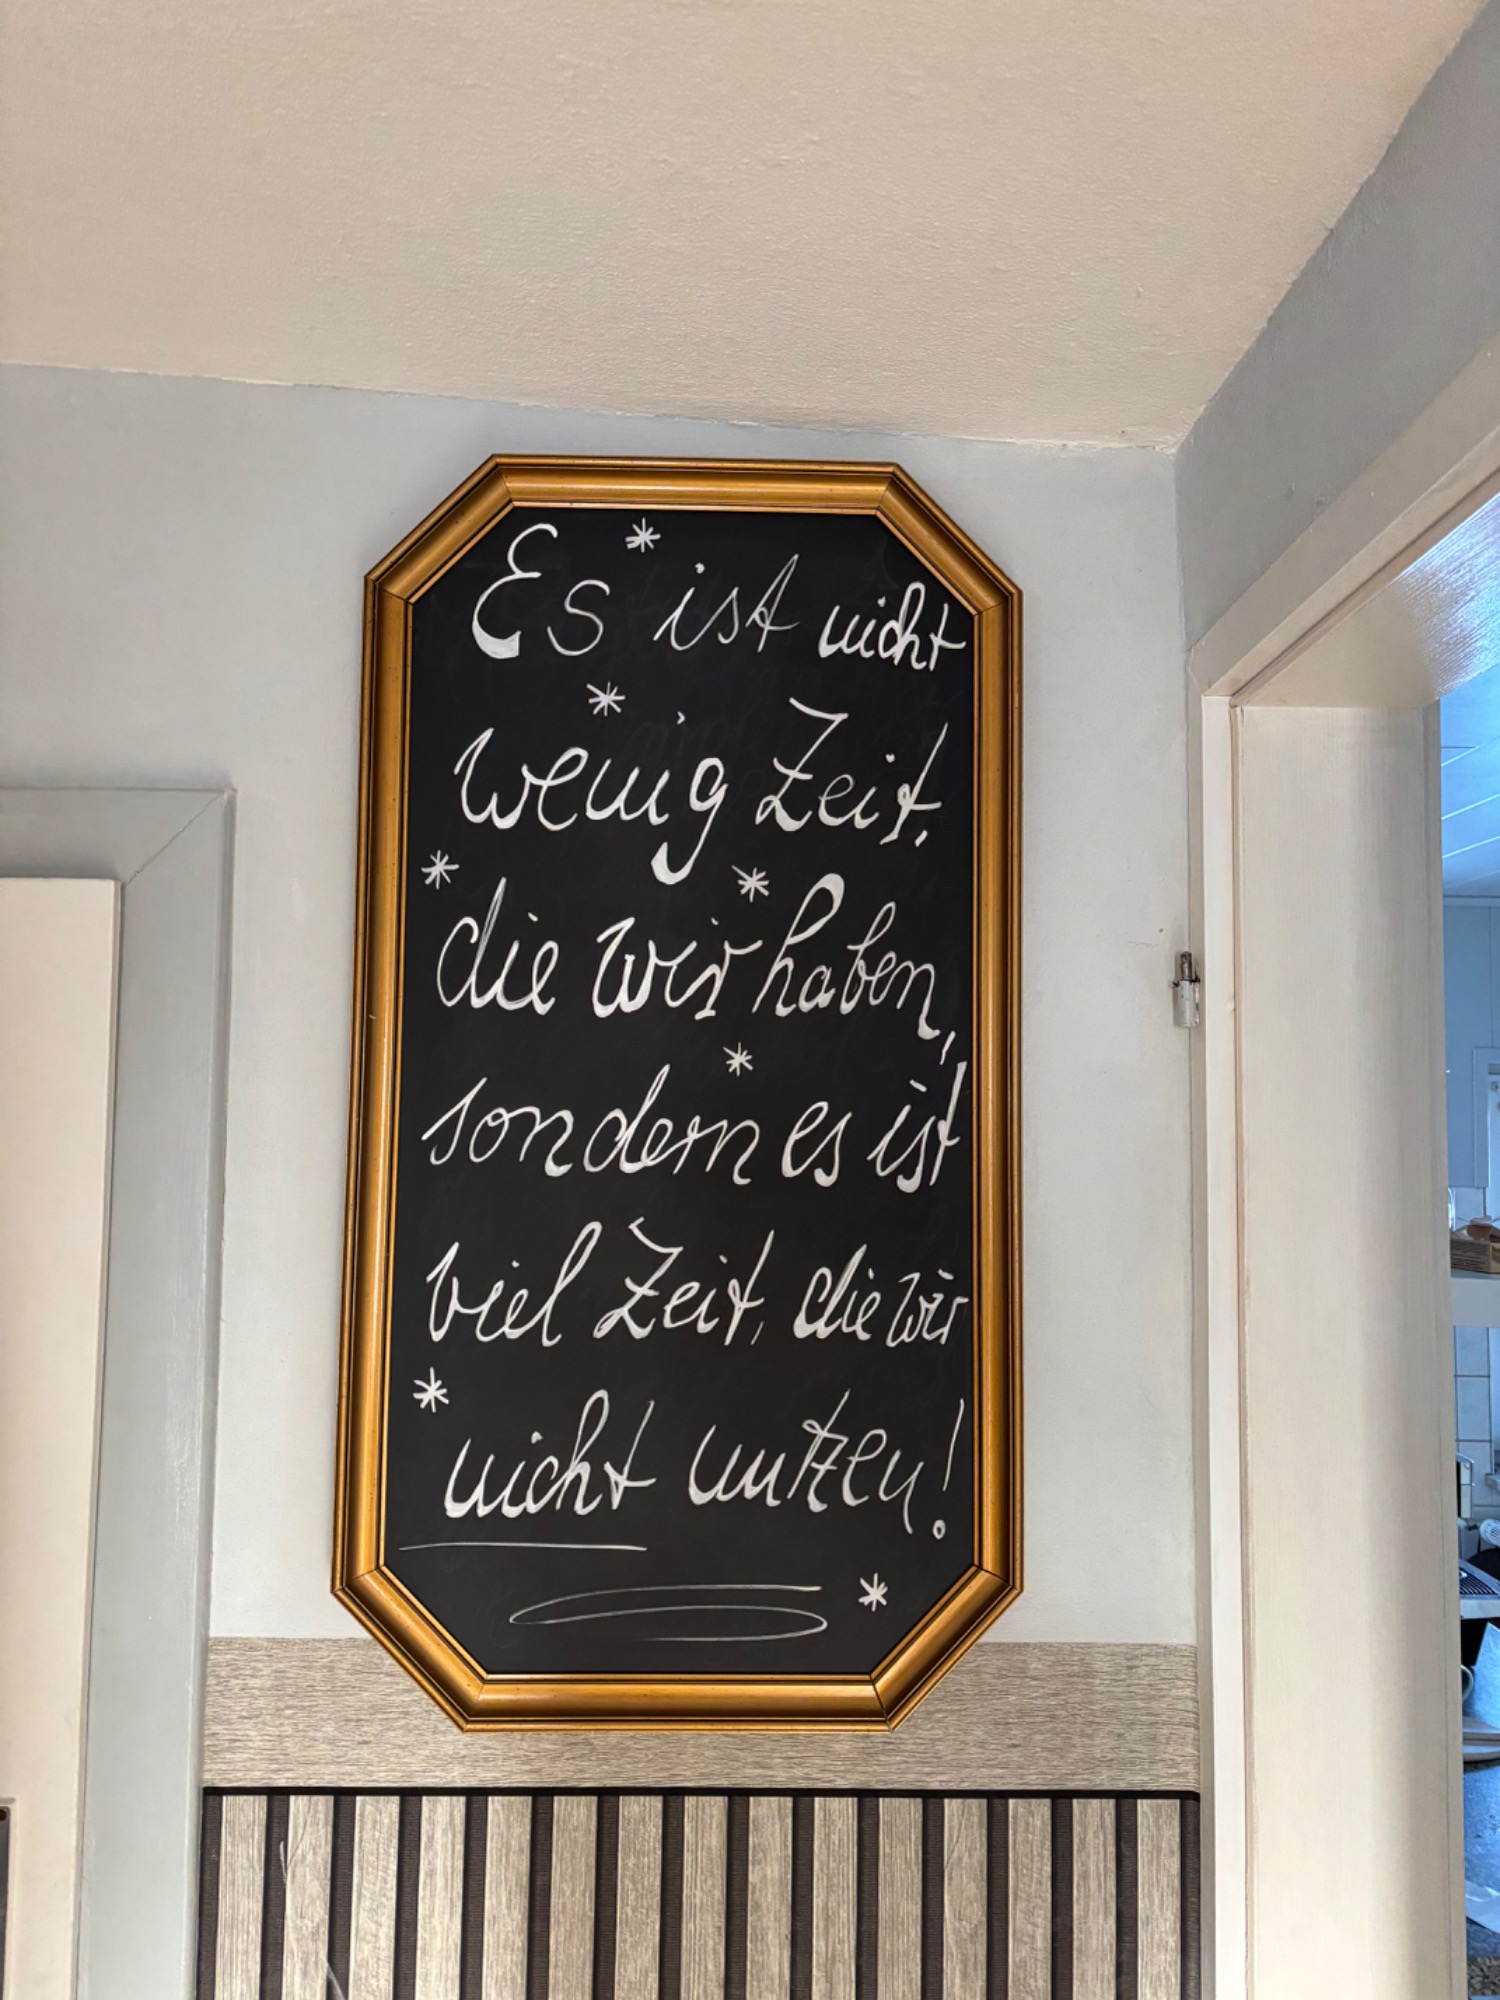 Es ist nicht
wenig Zeit,
die wir haben,
sondern es ist
viel Zeit, die wir
nicht nutzen!